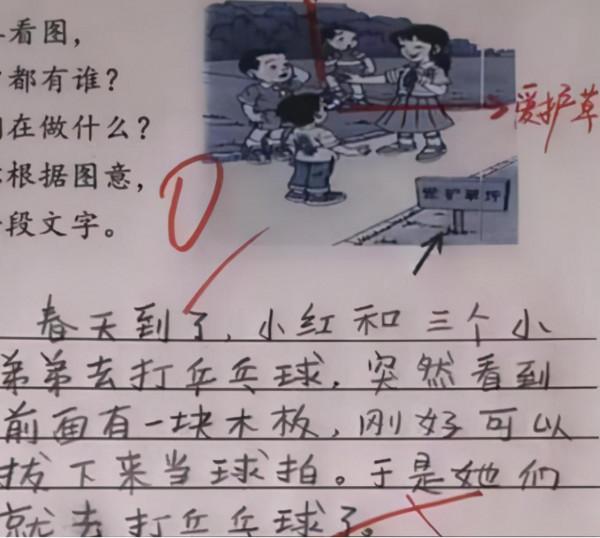 看图，
都有谁？
在做什么？
根据图意，
段文字。
爱护草
爱护草坪
春天到了，小红和三个小
弟弟去打乒乓球，突然看到
前面有一块木板，刚好可以
拔下来当球拍。于是她们
就去打乒乓球了。